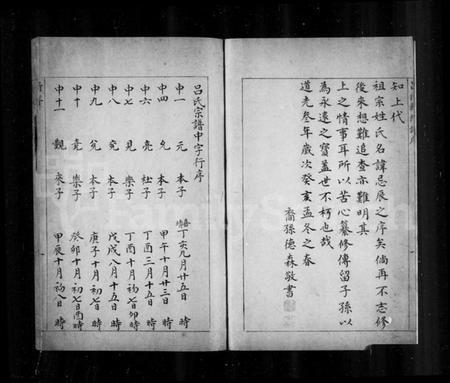 知上代
祖宗姓氏名諱忌辰之序矣倘再不志修
後來想難追查亦難明其
上之情事耳所以苦心纂修傳留子孫以
為永遠之寶蓋世不朽也哉
道光叁年歲次癸亥孟冬之春
裔孫德森敬書
呂氏宗譜申字行序
申一 元 本子 丁亥九月廿五日 時
申四 允 本子 甲午十月廿三日 時
申六 亮 杜子 丁酉三月十五日 時
申七 見 樂子 丁酉十月初七日卯時
申八 完 本子 戊戌八月十五日 時
申九 兖 本子 庚子十月初七日 時
申十 競 樂子 癸卯十月初七日酉時
申十一 觀 來子 甲辰十月初八日 時
FamilySearch